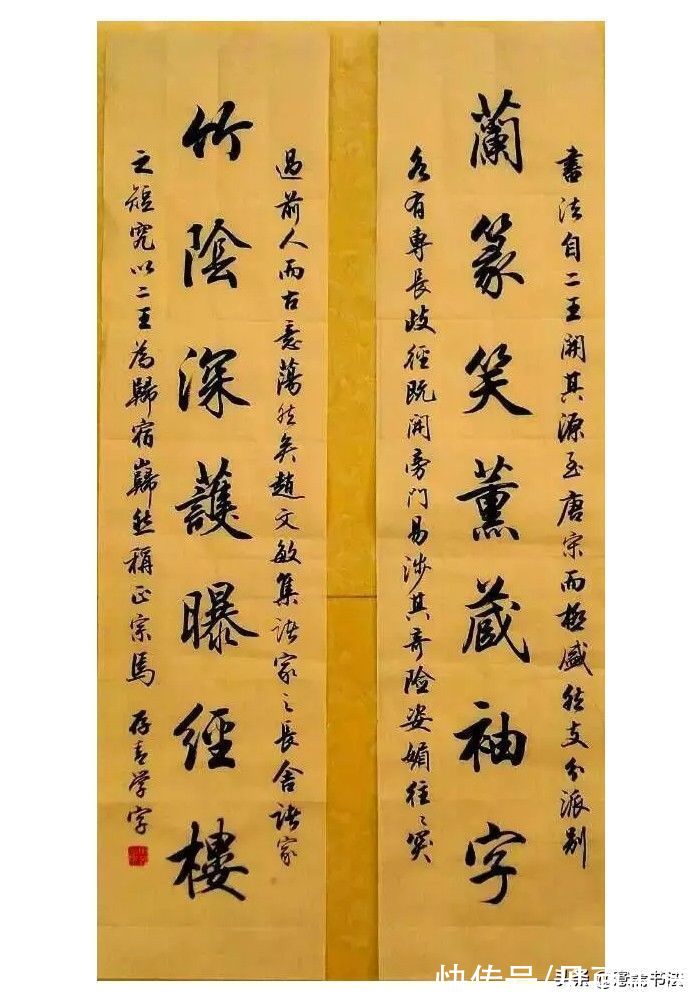 書法自二王開其源至唐宋而極盛然支分派别
蘭篆笑薰蔵袖字
各有專長歧徑既開旁門易涉其奇險姿媚往〻突
過前人而古意蕩然矣趙文敏集諸家之長舍諸家
竹陰深護曝經樓
之短究以二王為歸宿巋然稱正宗焉 存青学字
快传号/
头条 书法